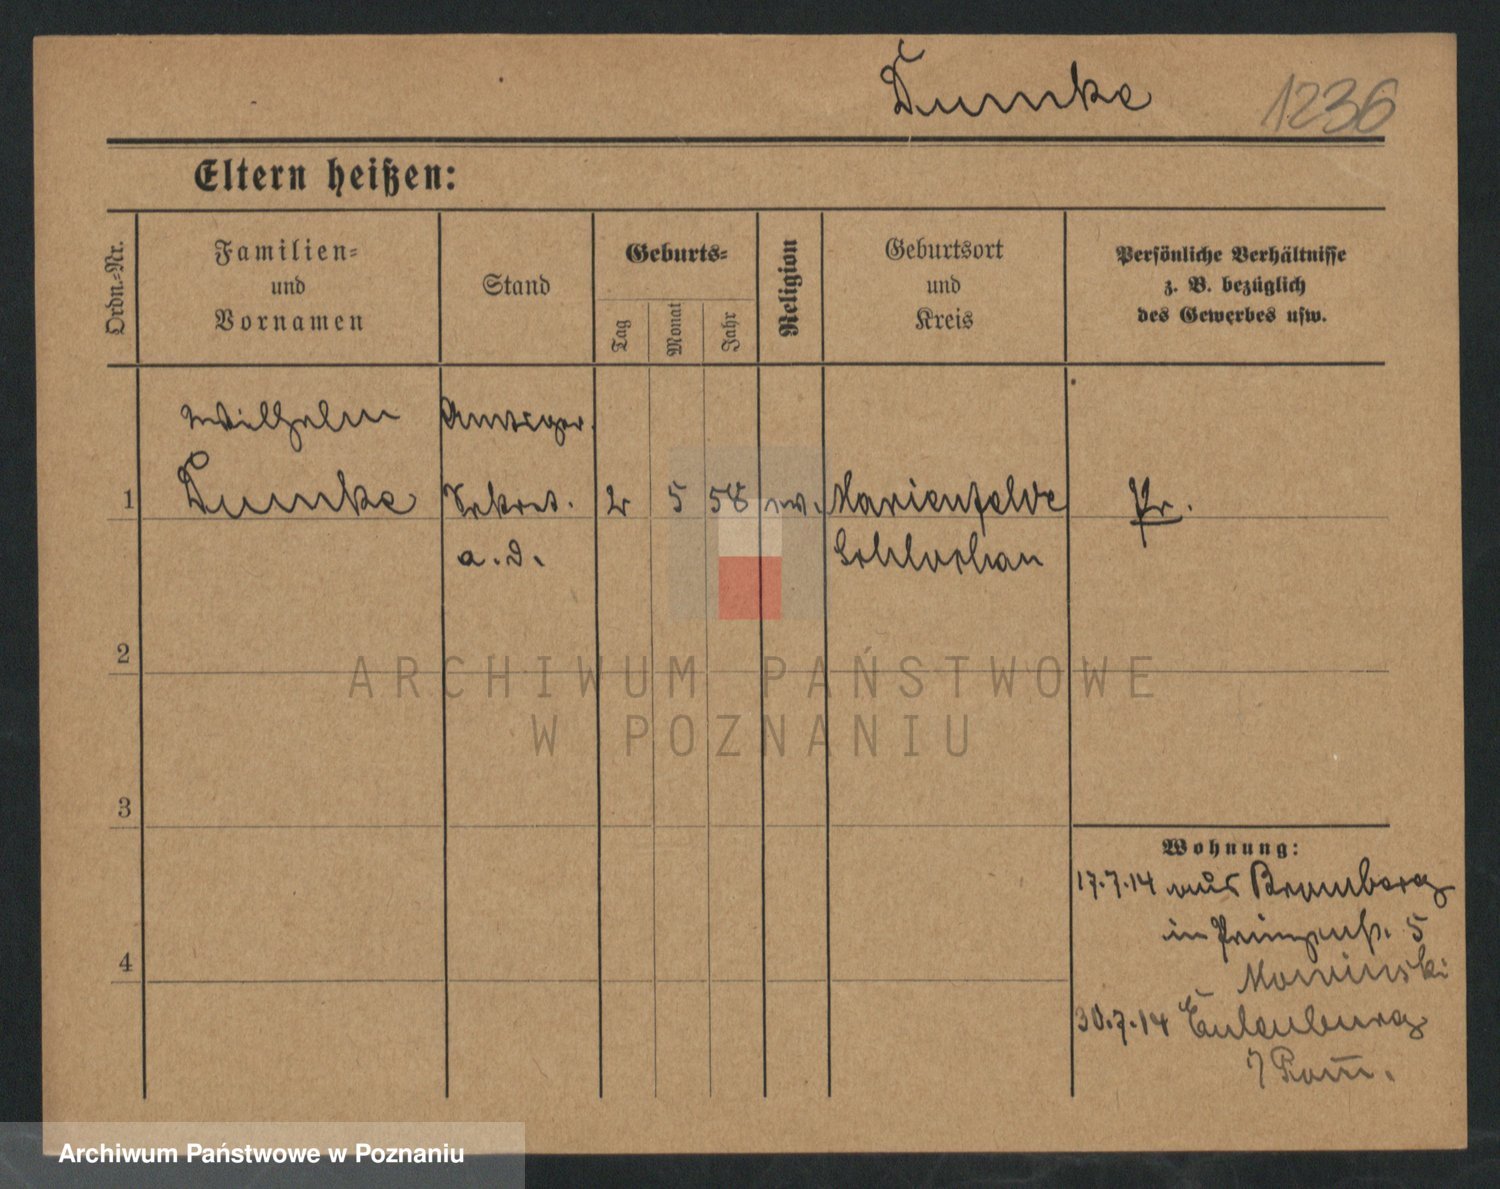 Dumke 1236
Eltern heißen:
Ordn.-Nr.
Familien-
und
Vornamen
Stand
Geburts-
Tag
Monat
Jahr
Religion
Geburtsort
und
Kreis
Persönliche Verhältnisse
z. B. bezüglich
des Gewerbes usw.
Wilhelm
Amtsger.
1 Dumke Sekret. 2 5 58 ev. Marienfelde Pr.
a. D. Schlochau
2
3
4
Wohnung:
17.7.14 aus Bromberg
in Prinzenstr. 5
30.7.14 Eulenburg
i/Pom.
ARCHIWUM PAŃSTWOWE
W POZNANIU
Archiwum Państwowe w Poznaniu